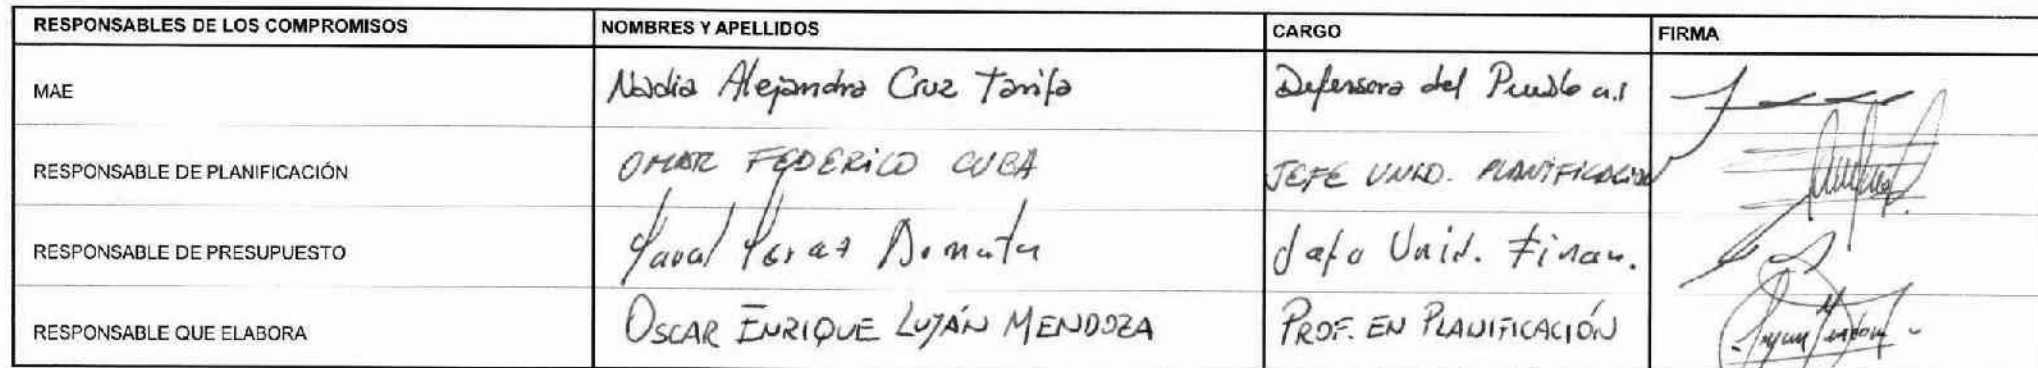 RESPONSABLES DE LOS COMPROMISOS NOMBRES Y APELLIDOS CARGO FIRMA
MAE Nadia Alejandra Cruz Tarifa Defensora del Pueblo a.i
RESPONSABLE DE PLANIFICACIÓN OMAR FEDERICO CUBA JEFE UNID. PLANIFICACION
RESPONSABLE DE PRESUPUESTO Jefe Unid. Finan.
RESPONSABLE QUE ELABORA OSCAR ENRIQUE LUJÁN MENDOZA PROF. EN PLANIFICACIÓN